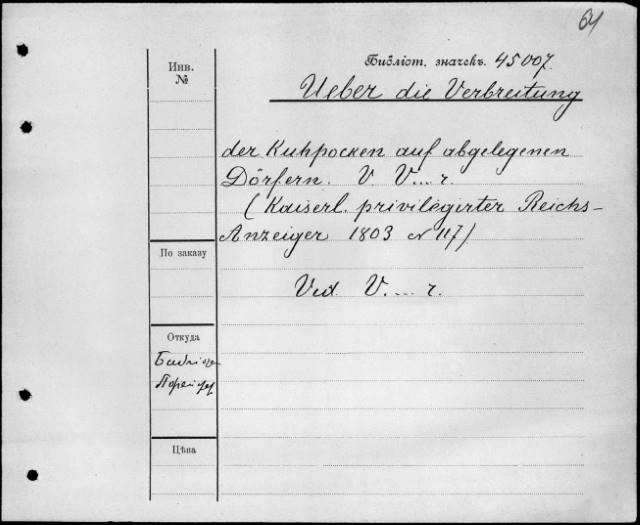 64
Библіот. значекъ. 45007.
Инв.
№
Ueber die Verbreitung
der Kuhpocken auf abgelegenen
Dörfern. V. V....r.
(Kaiserl. privilegirter Reichs-
Anzeiger 1803 № 117)
По заказу
Vid. V.....r.
Откуда
Цѣна